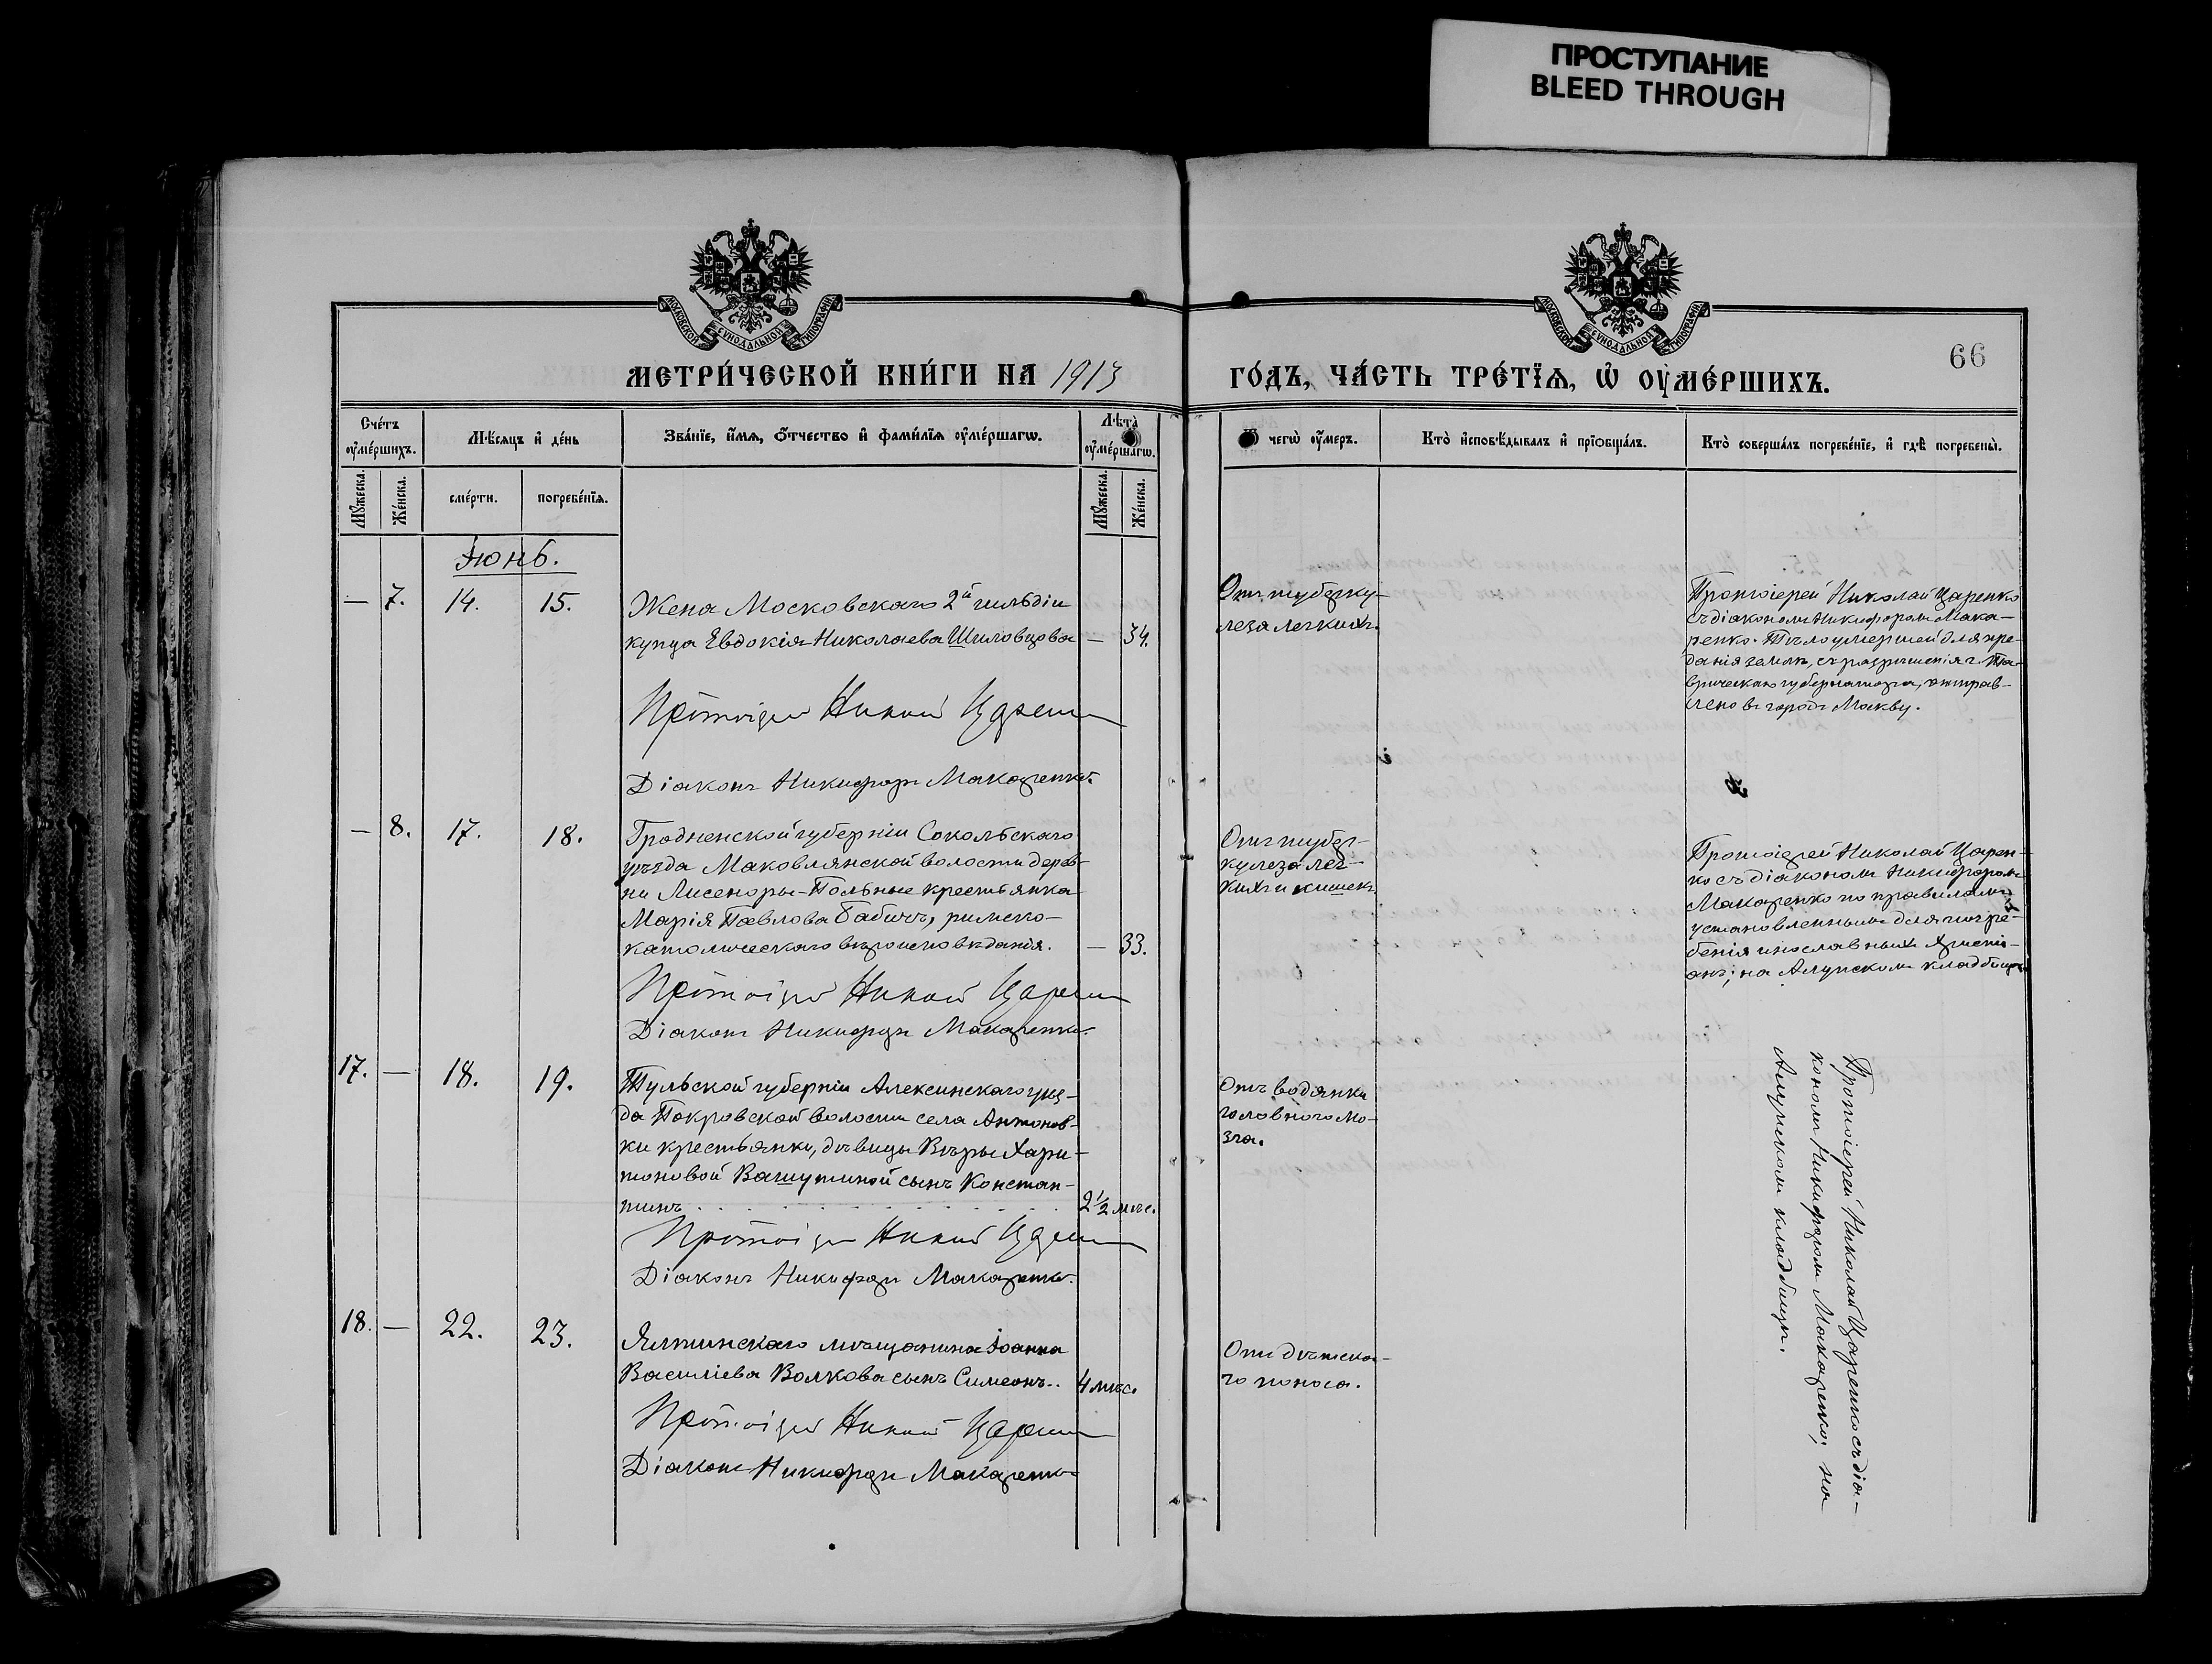 ПРОСТУПАНИЕ
BLEED THROUGH
МОСКОВСКОЙ СУНОДАЛЬНОЙ ТИПОГРАФІИ
МОСКОВСКОЙ СУНОДАЛЬНОЙ ТИПОГРАФІИ
66
МЕТРИ́ЧЕСКОЙ КНИ́ГИ НА 1913
ГО́ДЪ, ЧА́СТЬ ТРЕ́ТЇѦ, Ѡ҆ ОУ҆МЕ́РШИХЪ.
Сче́тъ оу҆ме́ршихъ.
Мѣ́сяцъ и҆ де́нь
Зва́нїе, и҆́мѧ, ѻ҆́тчество и҆ фами́лїѧ оу҆ме́ршагѡ.
Лѣ́та оу҆ме́ршагѡ.
чегѡ̀ оу҆́меръ.
Кто̀ и҆сповѣ́дывалъ и҆ прїѡбща́лъ.
Кто̀ соверша́лъ погребе́нїе, и҆ гдѣ̀ погребены̀.
Мꙋ́жеска.
Же́нска.
сме́рти.
погребе́нїѧ.
Мꙋ́жеска.
Же́нска.
Іюнь.
— 7. 14. 15.
Жена Московскаго 2й гильдіи
купца Евдокія Николаева Шиловцова — 34.
Протоіерей Николай Царенко
Діаконъ Никифоръ Макаренко.
Отъ туберку-
леза легкихъ.
Протоіерей Николай Царенко
съ діакономъ Никифоромъ Мака-
ренко. Тѣло умершей для пре-
данія землѣ, съ разрѣшенія г. Та-
врическаго губернатора, отправ-
лено въ городъ Москву.
— 8. 17. 18.
Гродненской губерніи Сокольскаго
уѣзда Маковлянской волости дерев-
ни Лисеноры-Польные крестьянка
Марія Павлова Бабичъ, римско-
католическаго вѣроисповѣданія. — 33.
Протоіерей Николай Царенко
Діаконъ Никифоръ Макаренко.
Отъ тубер-
кулеза лег-
кихъ и кишекъ
Протоіерей Николай Царен-
ко съ діакономъ Никифоромъ
Макаренко по правиламъ
установленнымъ для погре-
бенія инославныхъ христі-
анъ; на Алупскомъ кладбищѣ.
17. — 18. 19.
Тульской губерніи Алексинскаго уѣз-
да Покровской волости села Антонов-
ки крестьянки, дѣвицы Вѣры Хари-
тоновой Вашутиной сынъ Констан-
тинъ . . . 2½ мѣс.
Протоіерей Николай Царенко
Діаконъ Никифоръ Макаренко.
Отъ водянки
головного мо-
зга.
Протоіерей Николай Царенко съ діа-
кономъ Никифоромъ Макаренко; на
Алупскомъ кладбищѣ.
18. — 22. 23.
Ялтинскаго мѣщанина Іоанна
Василіева Волкова сынъ Симеонъ.. 4 мѣс.
Протоіерей Николай Царенко
Діаконъ Никифоръ Макаренко
Отъ дѣтска-
го поноса.